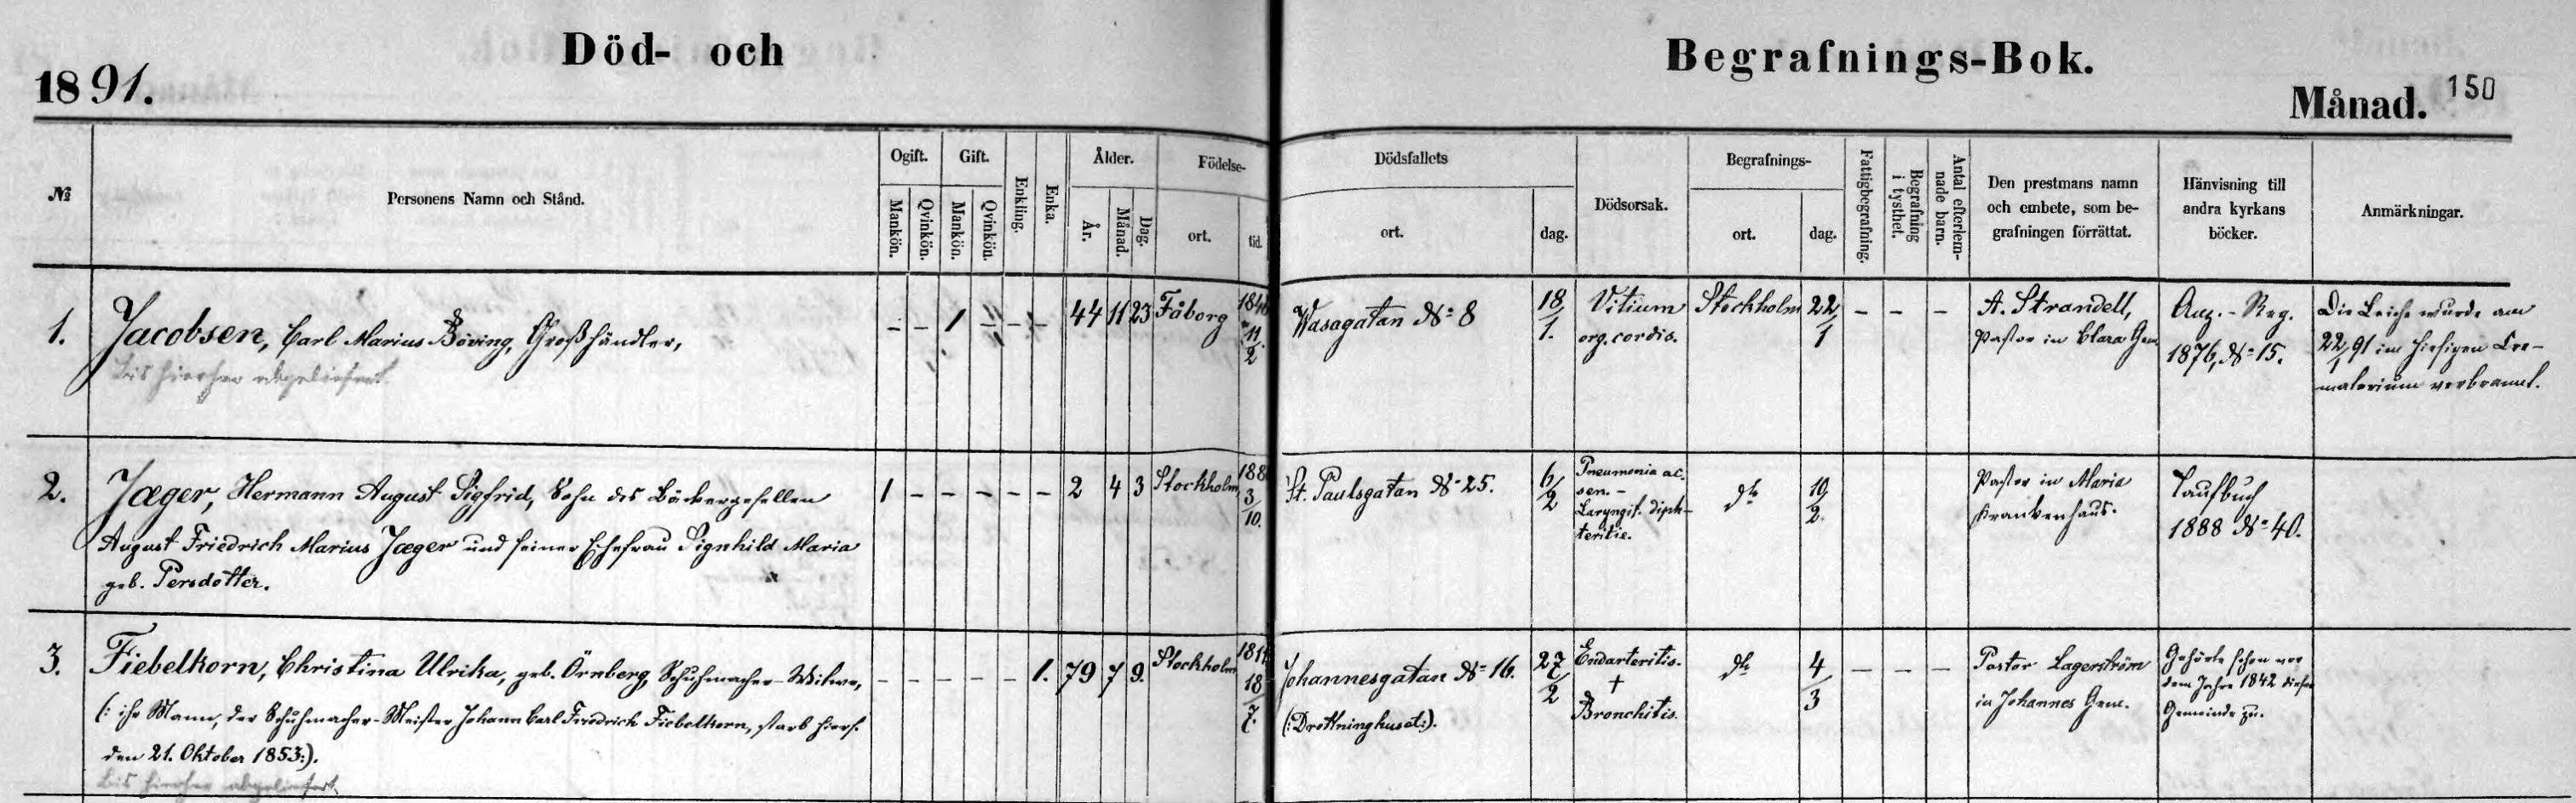 Död- och Begrafnings-Bok.
1891.
Månad. 150
№
Personens Namn och Stånd.
Ogift.
Mankön.
Qvinkön.
Gift.
Mankön.
Qvinkön.
Enkling.
Enka.
Ålder.
År.
Månad.
Dag.
Födelse-
ort.
tid.
Dödsfallets
ort.
dag.
Dödsorsak.
Begrafnings-
ort.
dag.
Fattigbegrafning.
Begrafning
i tysthet.
Antal efterlem-
nade barn.
Den prestmans namn
och embete, som be-
grafningen förrättat.
Hänvisning till
andra kyrkans
böcker.
Anmärkningar.
1.
Jacobsen, Carl Marius Böving, Großhändler,
Bis hierher abgeliefert.
– – 1 – – –
44 11 23
Fåborg
1846
11
2
Wasagatan N° 8
18/1.
Vitium
org. cordis.
Stockholm
22/1
– – –
A. Strandell,
Pastor in Clara Gem.
Aug.-Reg.
1876, N° 15.
Die Leiche wurde am
22/1 91 im hiesigen Cre-
matorium verbrannt.
2.
Jæger, Hermann August Sigfrid, Sohn des Bäckergesellen
August Friedrich Marius Jæger und seiner Ehefrau Signhild Maria
geb. Persdotter.
1 – – – – –
2 4 3
Stockholm
188
3
10.
St. Paulsgatan N° 25.
6/2
Pneumonia ac.
sen. –
Laryngit. diph-
teritic.
do
10/2.
Pastor in Maria
Krankenhaus.
Taufbuch
1888 N° 40.
3.
Fiebelkorn, Christina Ulrika, geb. Örnberg, Schuhmacher-Witwe,
(: ihr Mann, der Schuhmacher-Meister Johann Carl Friedrich Fiebelkorn, starb hiers.
den 21. Oktober 1853:).
Bis hierher abgeliefert.
– – – – – 1.
79 7 9.
Stockholm
181
18
7.
Johannesgatan N° 16.
(: Drottninghuset:).
27/2
Endarteritis.
+
Bronchitis.
do
4/3
– – –
Pastor Lagerström
in Johannes Gem.
Gehörte schon vor
dem Jahre 1842 dieser
Gemeinde zu.